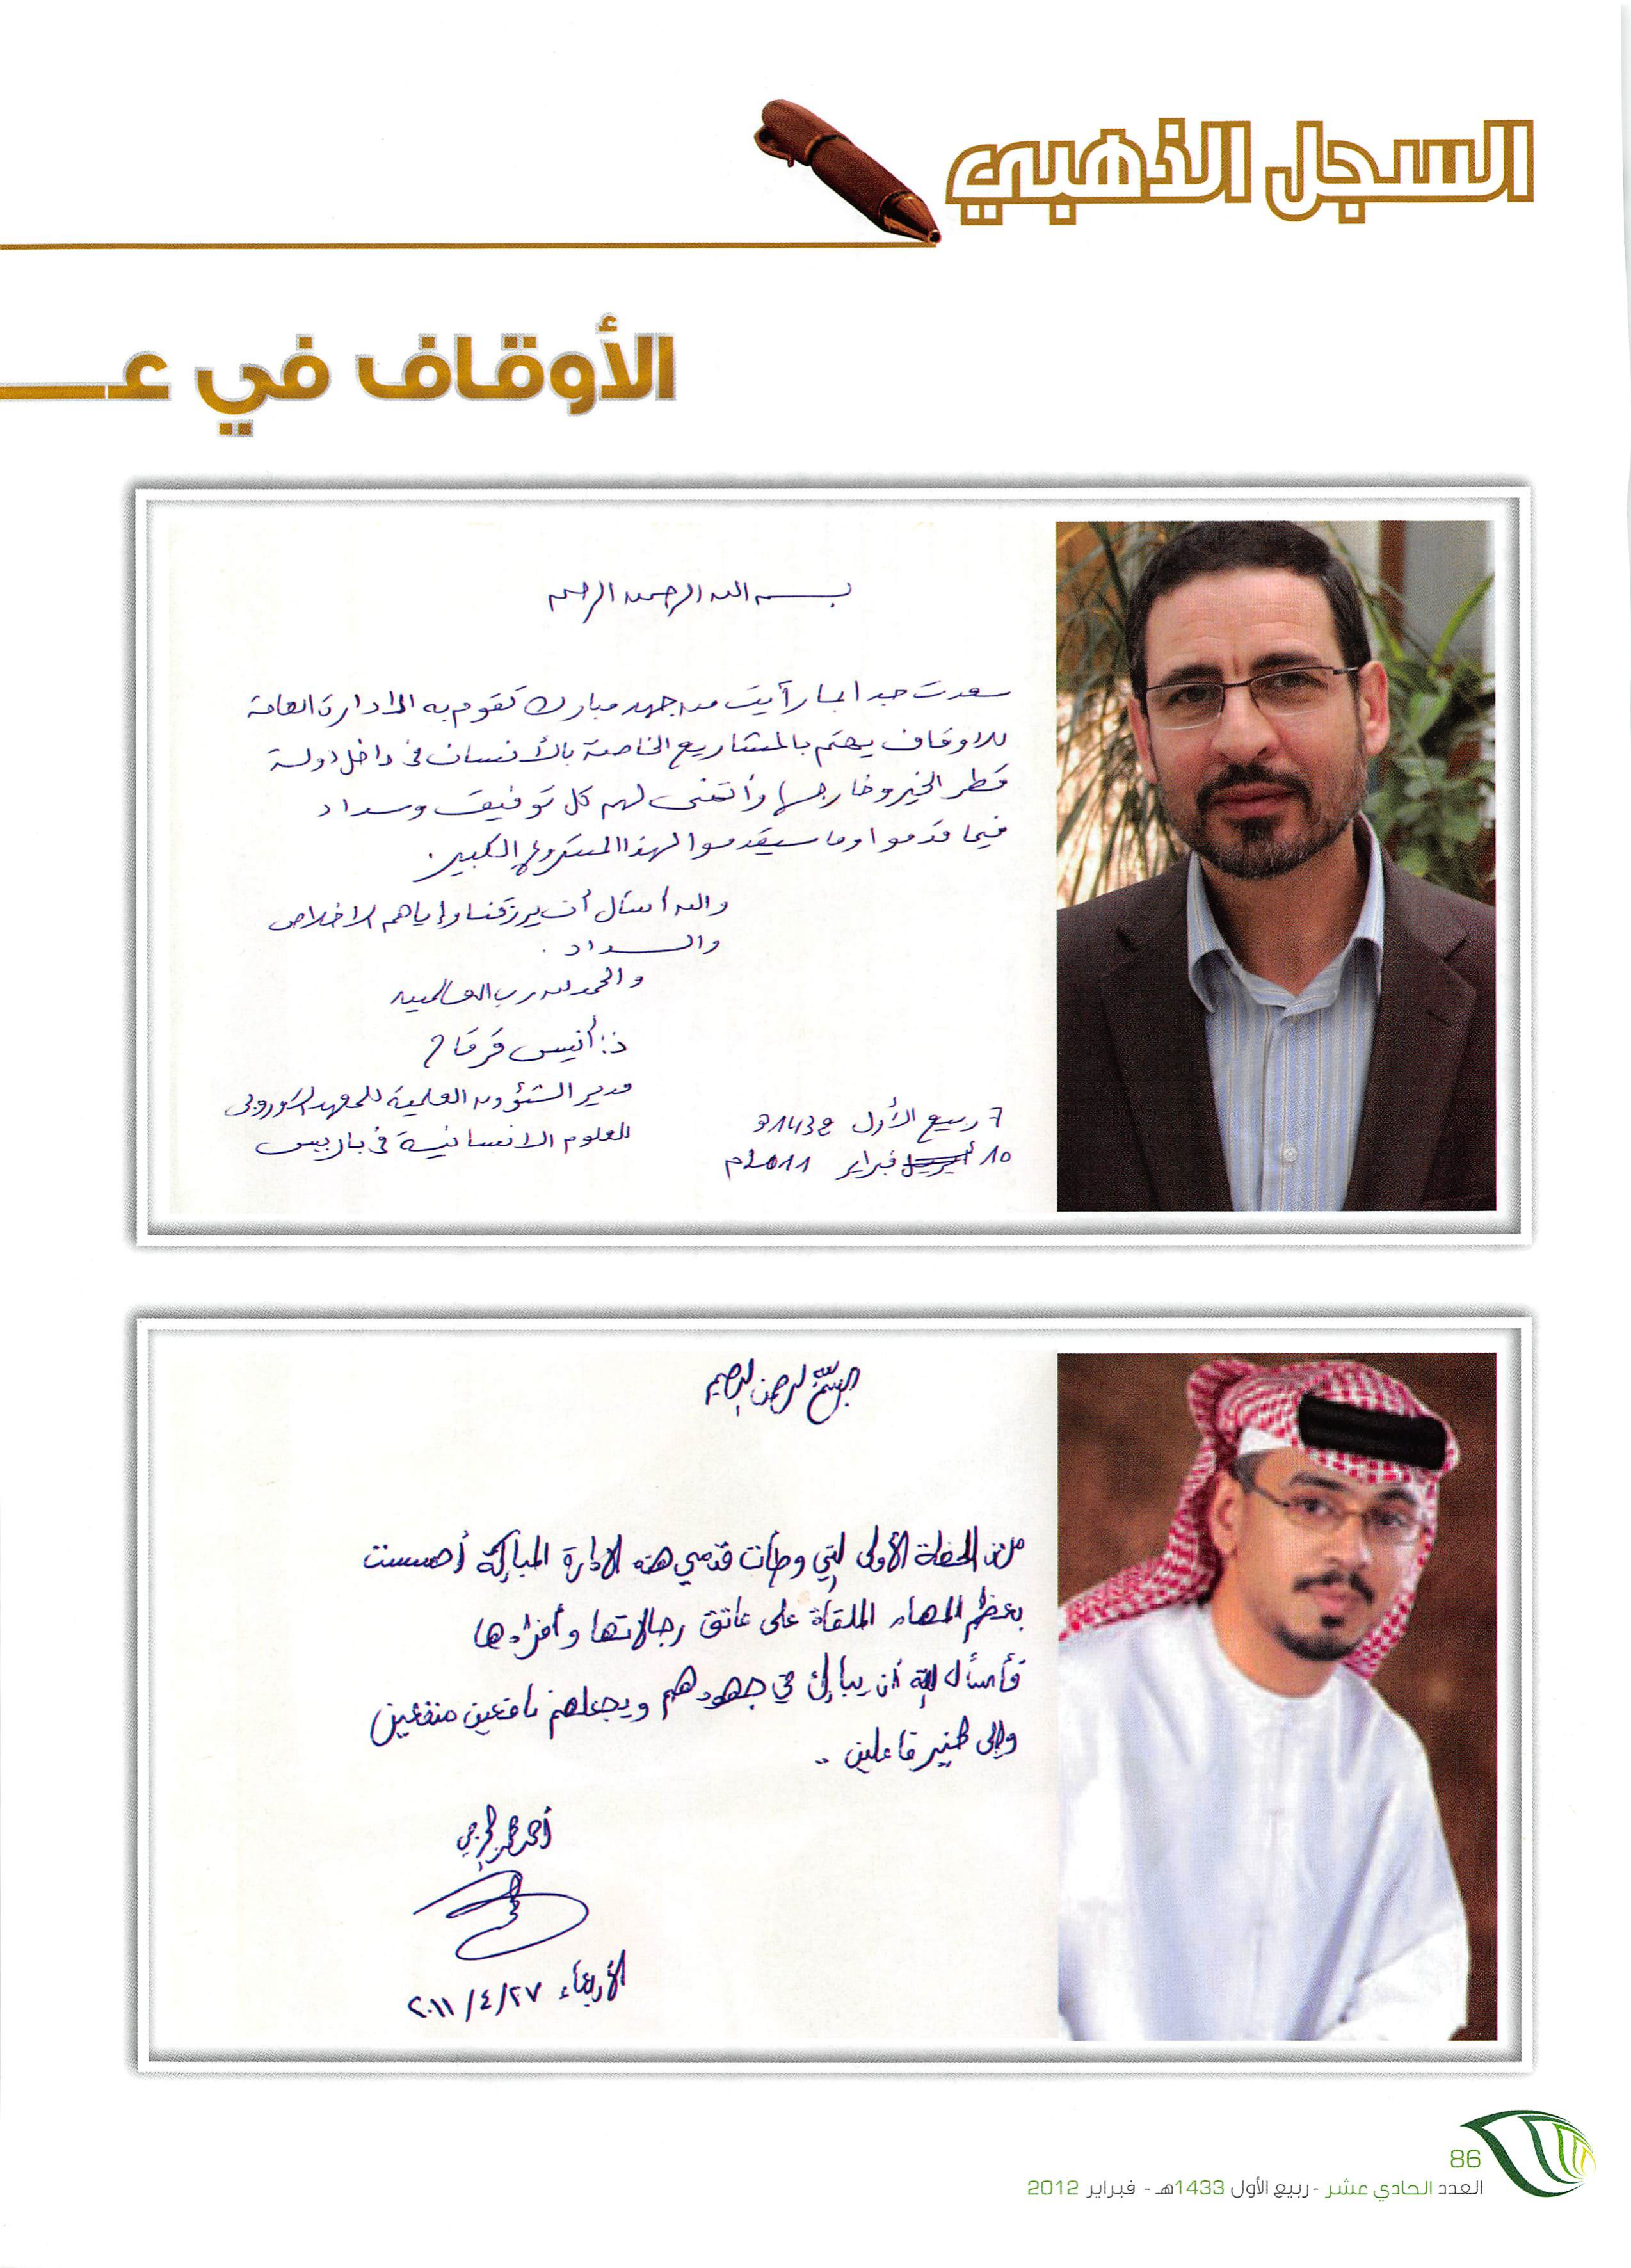 السجل الذهبي
الأوقاف في عـ
بسم الله الرحمن الرحيم
سعدت جدا لما رأيت من جهد مبارك تقوم به الإدارة العامة
للأوقاف يهتم بالمشاريع الخاصة بالأنسان في داخل دولة
قطر الخير وخارجها وأتمنى لهم كل توفيق وسداد
فيما قدموا وما سيقدموا لهذا المشروع الكبير.
والله أسأل أن يرزقنا وإياهم الاخلاص
والسداد.
والحمد لله رب العالمين
د: أنيس قرقاح
مدير الشؤون العلمية للمعهد الأوروبي
للعلوم الانسانية في باريس
7 ربيع الأول 1432هـ
10 أبريل فبراير 2011م
بسم الله الرحمن الرحيم
منذ اللحظة الأولى التي وطأت قدمي هذه الإدارة المباركة أحسست
بعظم المهام الملقاة على عاتق رجالاتها وأفرادها
فأسأل الله أن يبارك في جهودهم ويجعلهم نافعين منتفعين
وإلى الخير فاعلين ..
أحمد
الأربعاء ٢٠١١/٤/٢٧
86
العدد الحادي عشر - ربيع الأول 1433هـ - فبراير 2012